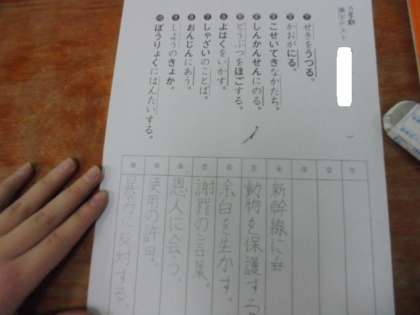 漢字テスト
① せきをうつる。
② かおがにる。
③ こせいてきなかたち。
④ しんかんせんにのる。
⑤ どうぶつをほごする。
⑥ よはくをいかす。
⑦ しゃざいのことば。
⑧ おんじんにあう。
⑨ しようのきょか。
⑩ ぼうりょくにはんたいする。
新幹線に
動物を保護する
余白を生かす。
謝罪の言葉。
恩人に会う。
使用の許可。
暴力に反対する。